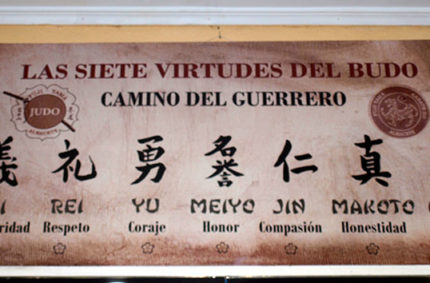 LAS SIETE VIRTUDES DEL BUDO
CAMINO DEL GUERRERO
JUDO
義 礼 勇 名誉 仁 真
I REI YU MEIYO JIN MAKOTO
ridad Respeto Coraje Honor Compasión Honestidad